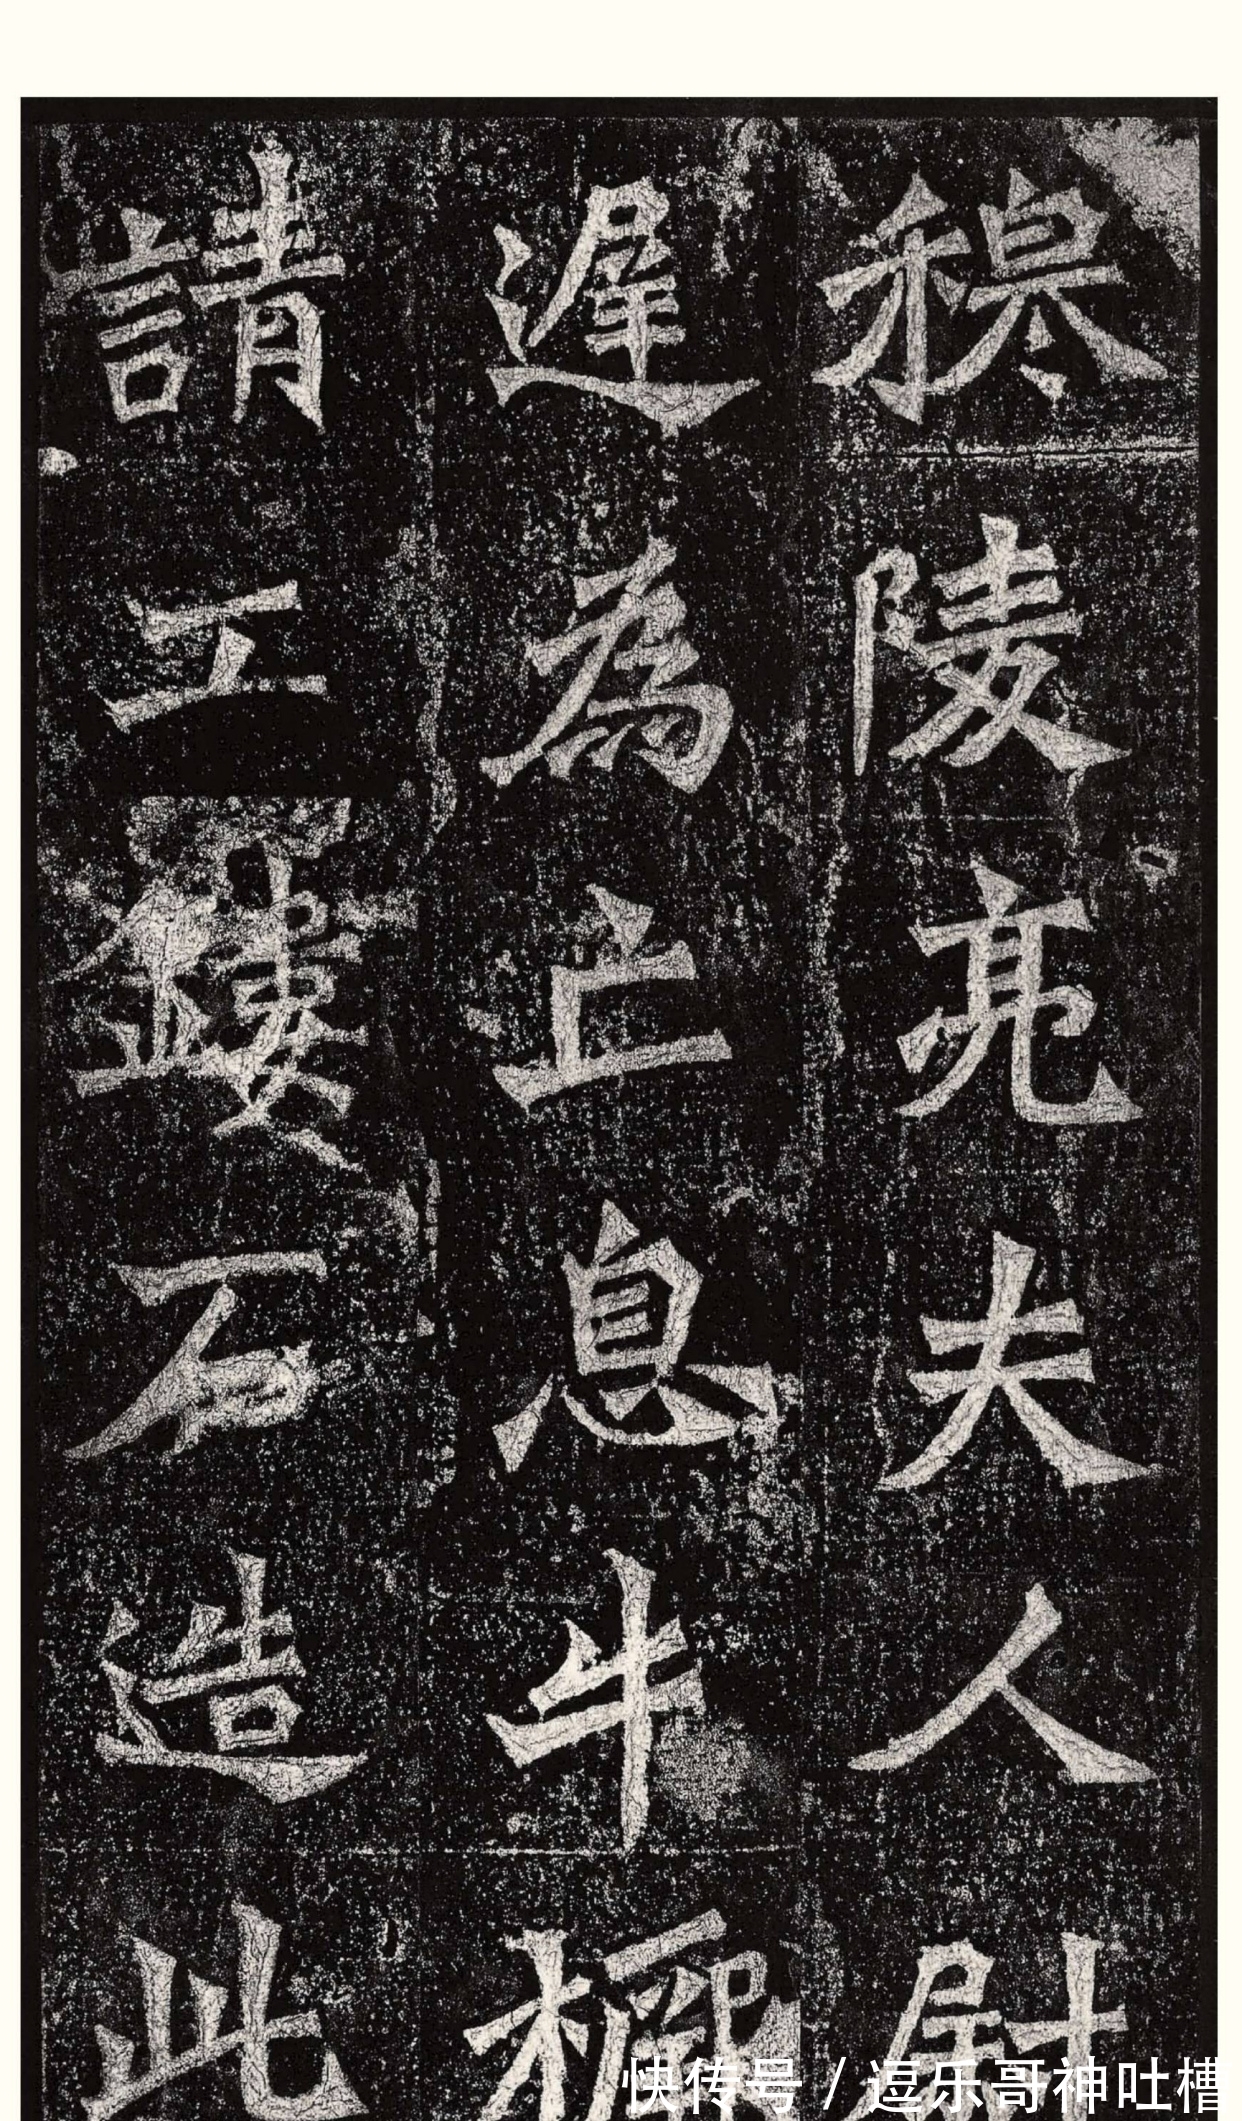 穆陵亮夫人尉
遲為亡息牛橛
請工鏤石造此
快传号 / 逗乐哥神吐槽